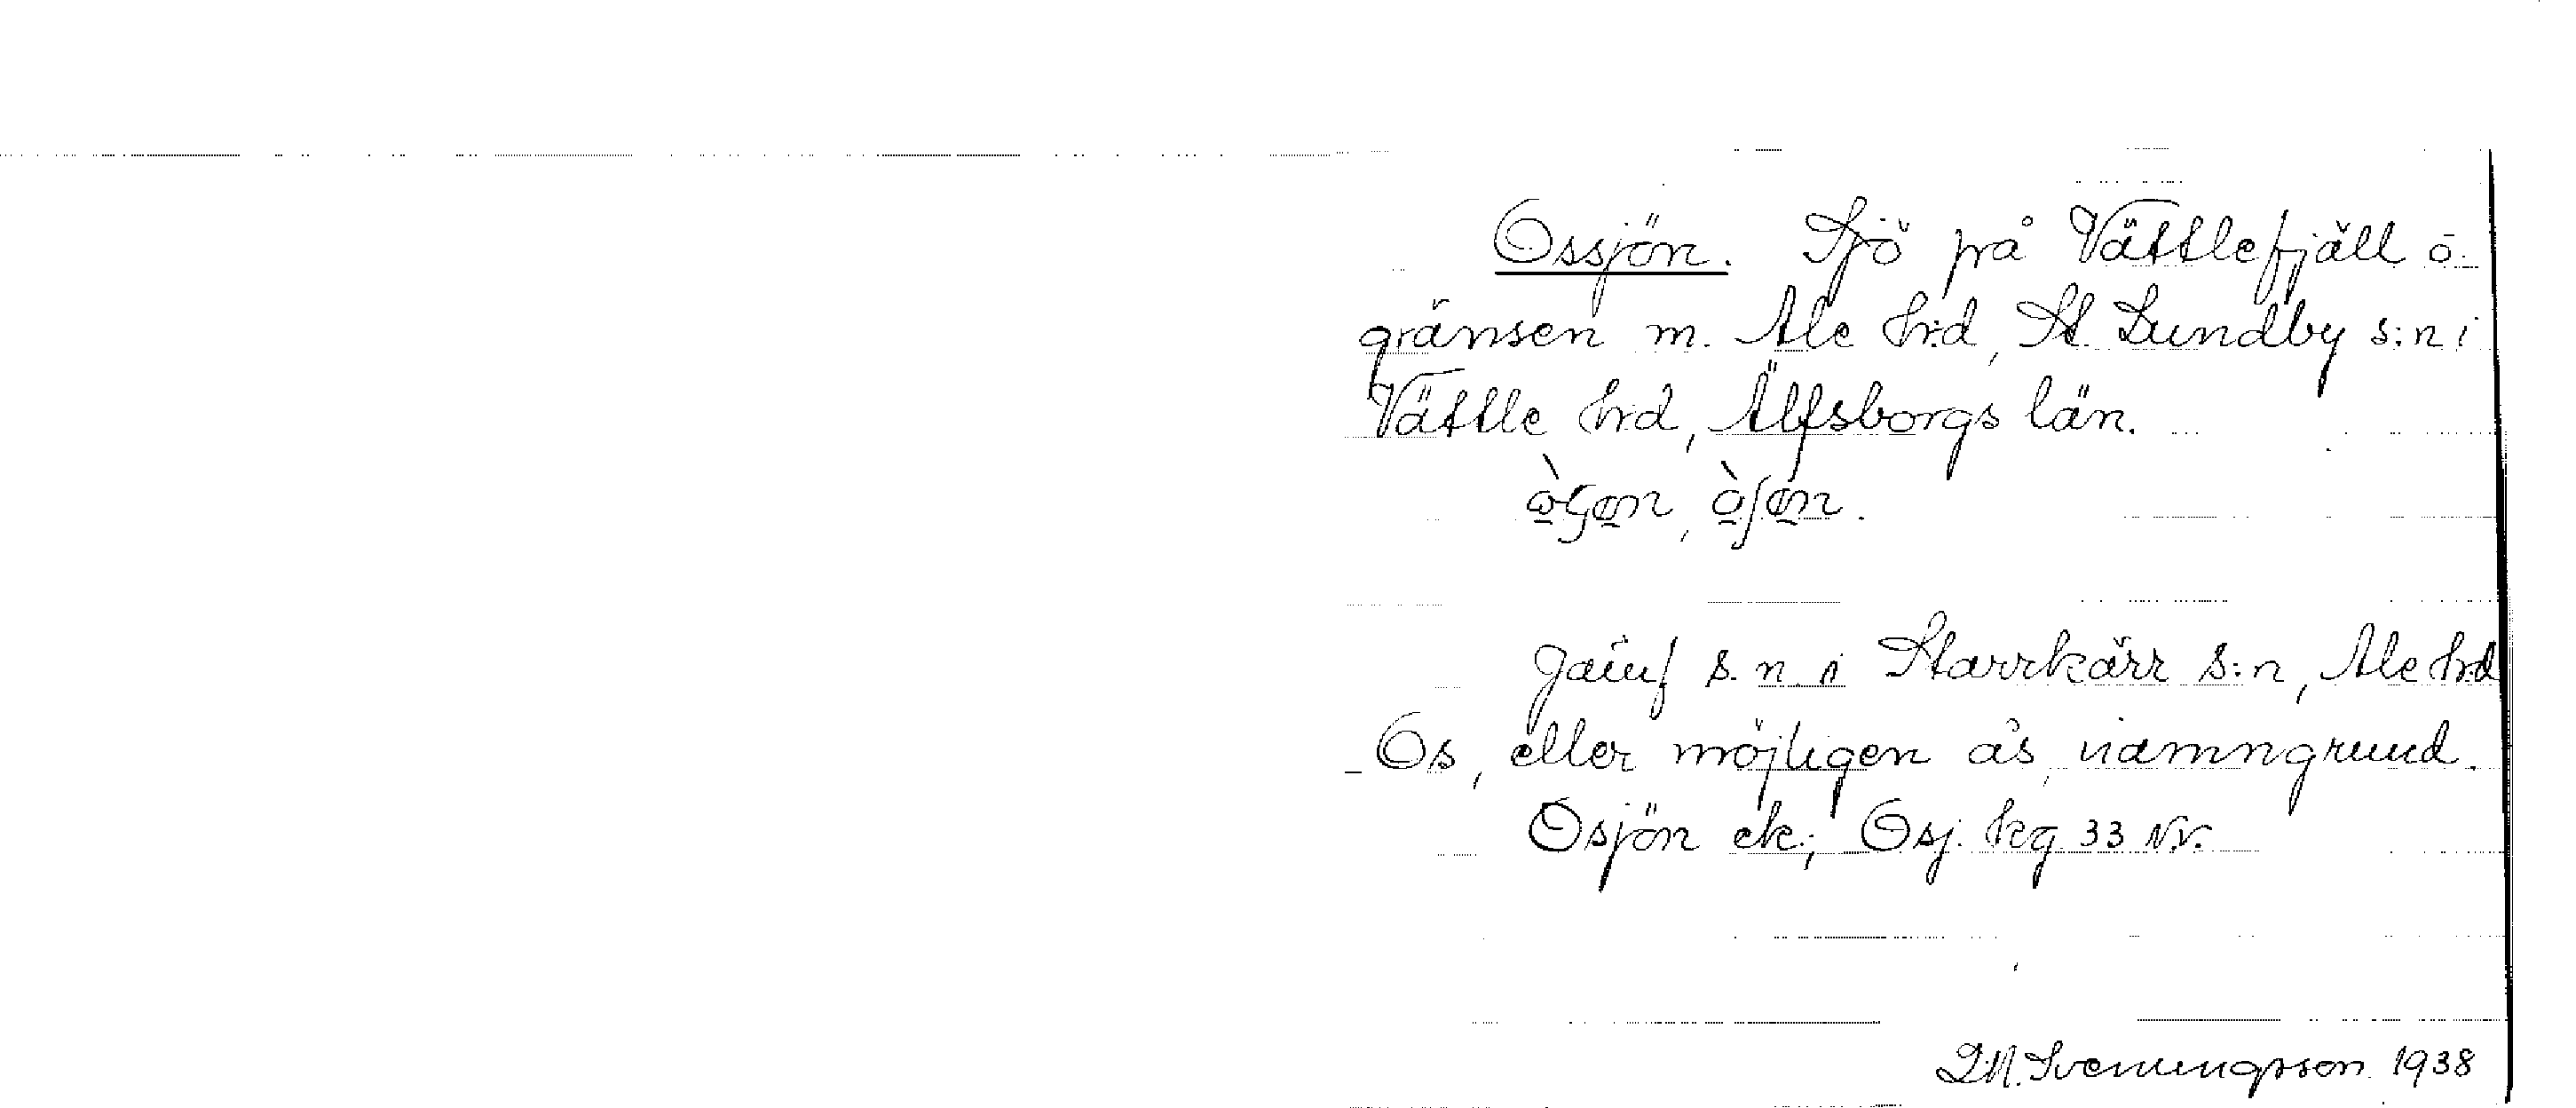 Ossjön. Sjö på Vättlefjäll o.
gränsen m. Ale hrd, St. Lundby s:n i
Vättle hrd, Älfsborgs län.
Jämf s. n. i Starrkärr s:n, Ale hrd
Os, eller möjligen ås, namngrund.
Osjön ek.; Osj. kg 33 N.V.
Svenungsson 1938